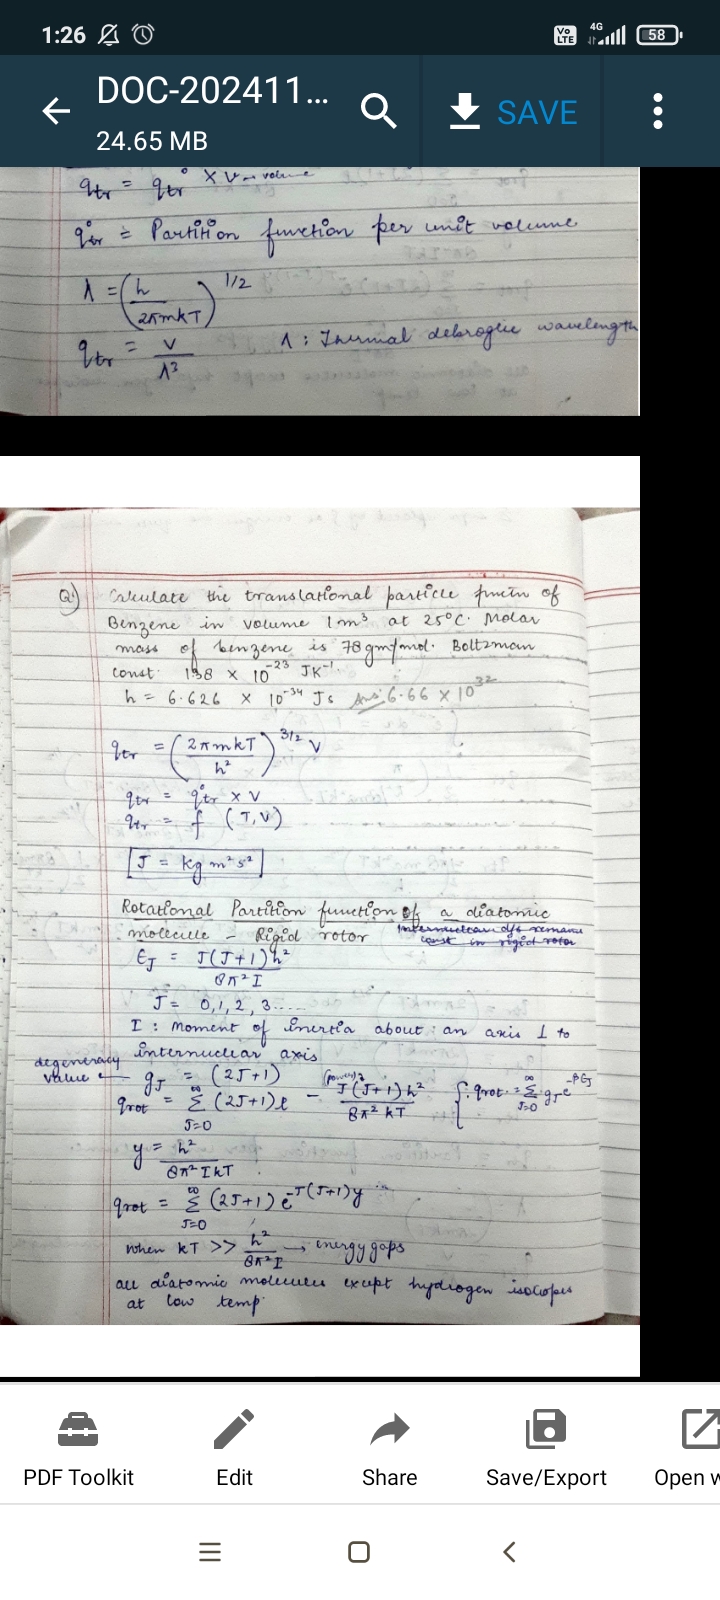 1:26
4G
Vo LTE
58
DOC-202411...
24.65 MB
SAVE
qtr = q°tr × V → volume
q°tr = Partition function per unit volume
Λ = (h / 2πmkT)^1/2
qtr = V / Λ³
Λ : Thermal debroglie wavelength
Q) Calculate the translational particle of
Benzene in volume 1m³ at 25°C. Molar
mass of benzene is 78 gm/mol. Boltzman
const 138 × 10^-23 JK^-1.
h = 6.626 × 10^-34 Js Ans: 6.66 × 10^32
qtr = (2πmkT / h²)^3/2 V
qtr = q°tr × V
qtr = f (T,V)
[J = kg m² s²]
Rotational Partition function of a diatomic
molecule - Rigid rotor
Internuclear remains
const in rigid rotor
ЄJ = J(J+1)h² / 8π²I
J = 0,1,2,3....
I : Moment of inertia about an axis ⊥ to
internuclear axis
degeneracy value ← gJ = (2J+1)
qrot = Σ J=0 ∞ (2J+1) e - (power) J(J+1)h² / 8π²kT { ∴ qrot = Σ J=0 ∞ gJ e^-βЄJ
y = h² / 8π²IkT
qrot = Σ J=0 ∞ (2J+1) e^-J(J+1)y
When kT >> h² / 8π²I → energy gaps
all diatomic molecules except hydrogen isotopes
at low temp.
PDF Toolkit
Edit
Share
Save/Export
Open w